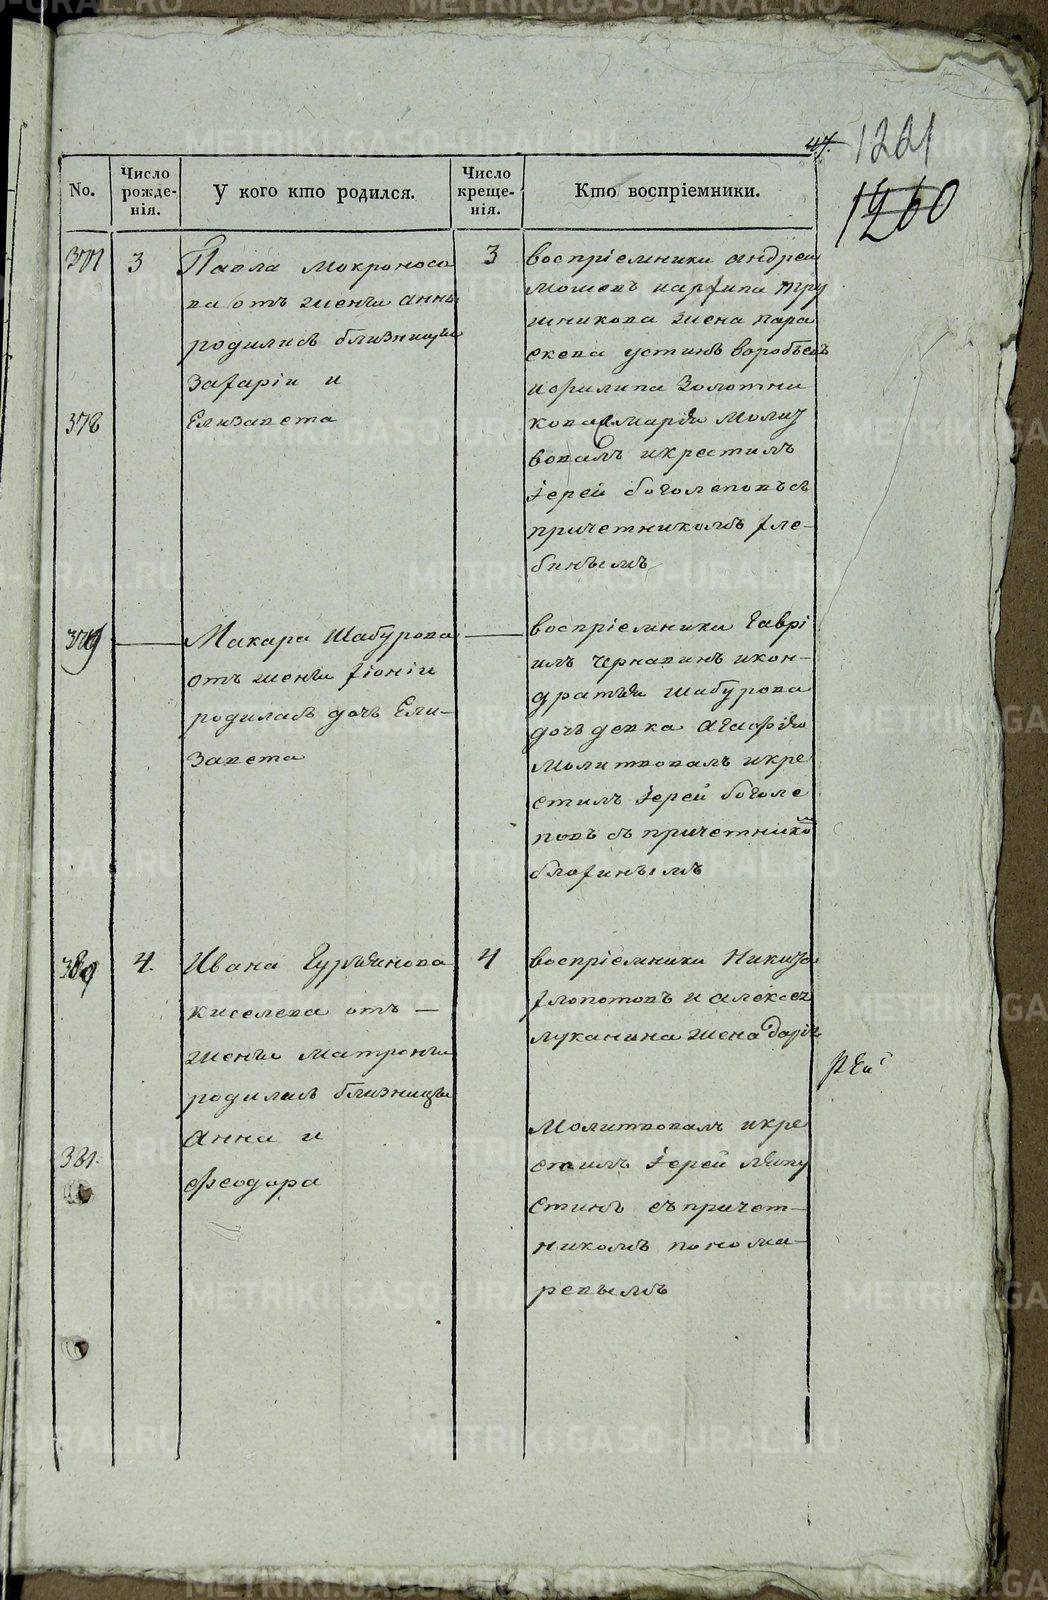 47. 1221
1260
No.
Число рожденія.
У кого кто родился.
Число крещенія.
Кто воспріемники.
377 3 Павла Мокроносо
ва отъ жены анны
родились близнецы
Захаріи и
378 Елизавета
3 воспріемники андреи
мошевъ карпипа тру
шникова жена пара
скева устинъ воробьевъ
и филипа Золотни
кова марія Молит
вовалъ и крестилъ
іерей боголеповъ съ
причетникомъ хле
бинымъ
379 Макара Шабурова
отъ жены хіоніи
родилась дочь Ели-
завета
воспріемники Гаврі
илъ чернавинъ и кон-
дратья шабурова
дочь девка агафія
Молитвовалъ и кре
стилъ іерей боголе
повъ съ причетнико
380 4. Ивана Гурьянова
киселева отъ
жены матроны
родились близнецы
анна и
381. феодора
4 воспріемники Никита
хлопотовъ и алексея
луканина жена дарья
Молитвовалъ и кре
стилъ іерей ляпу
стинъ съ причет-
никомъ понома-
ревымъ
METRIKI.GASO-URAL.RU